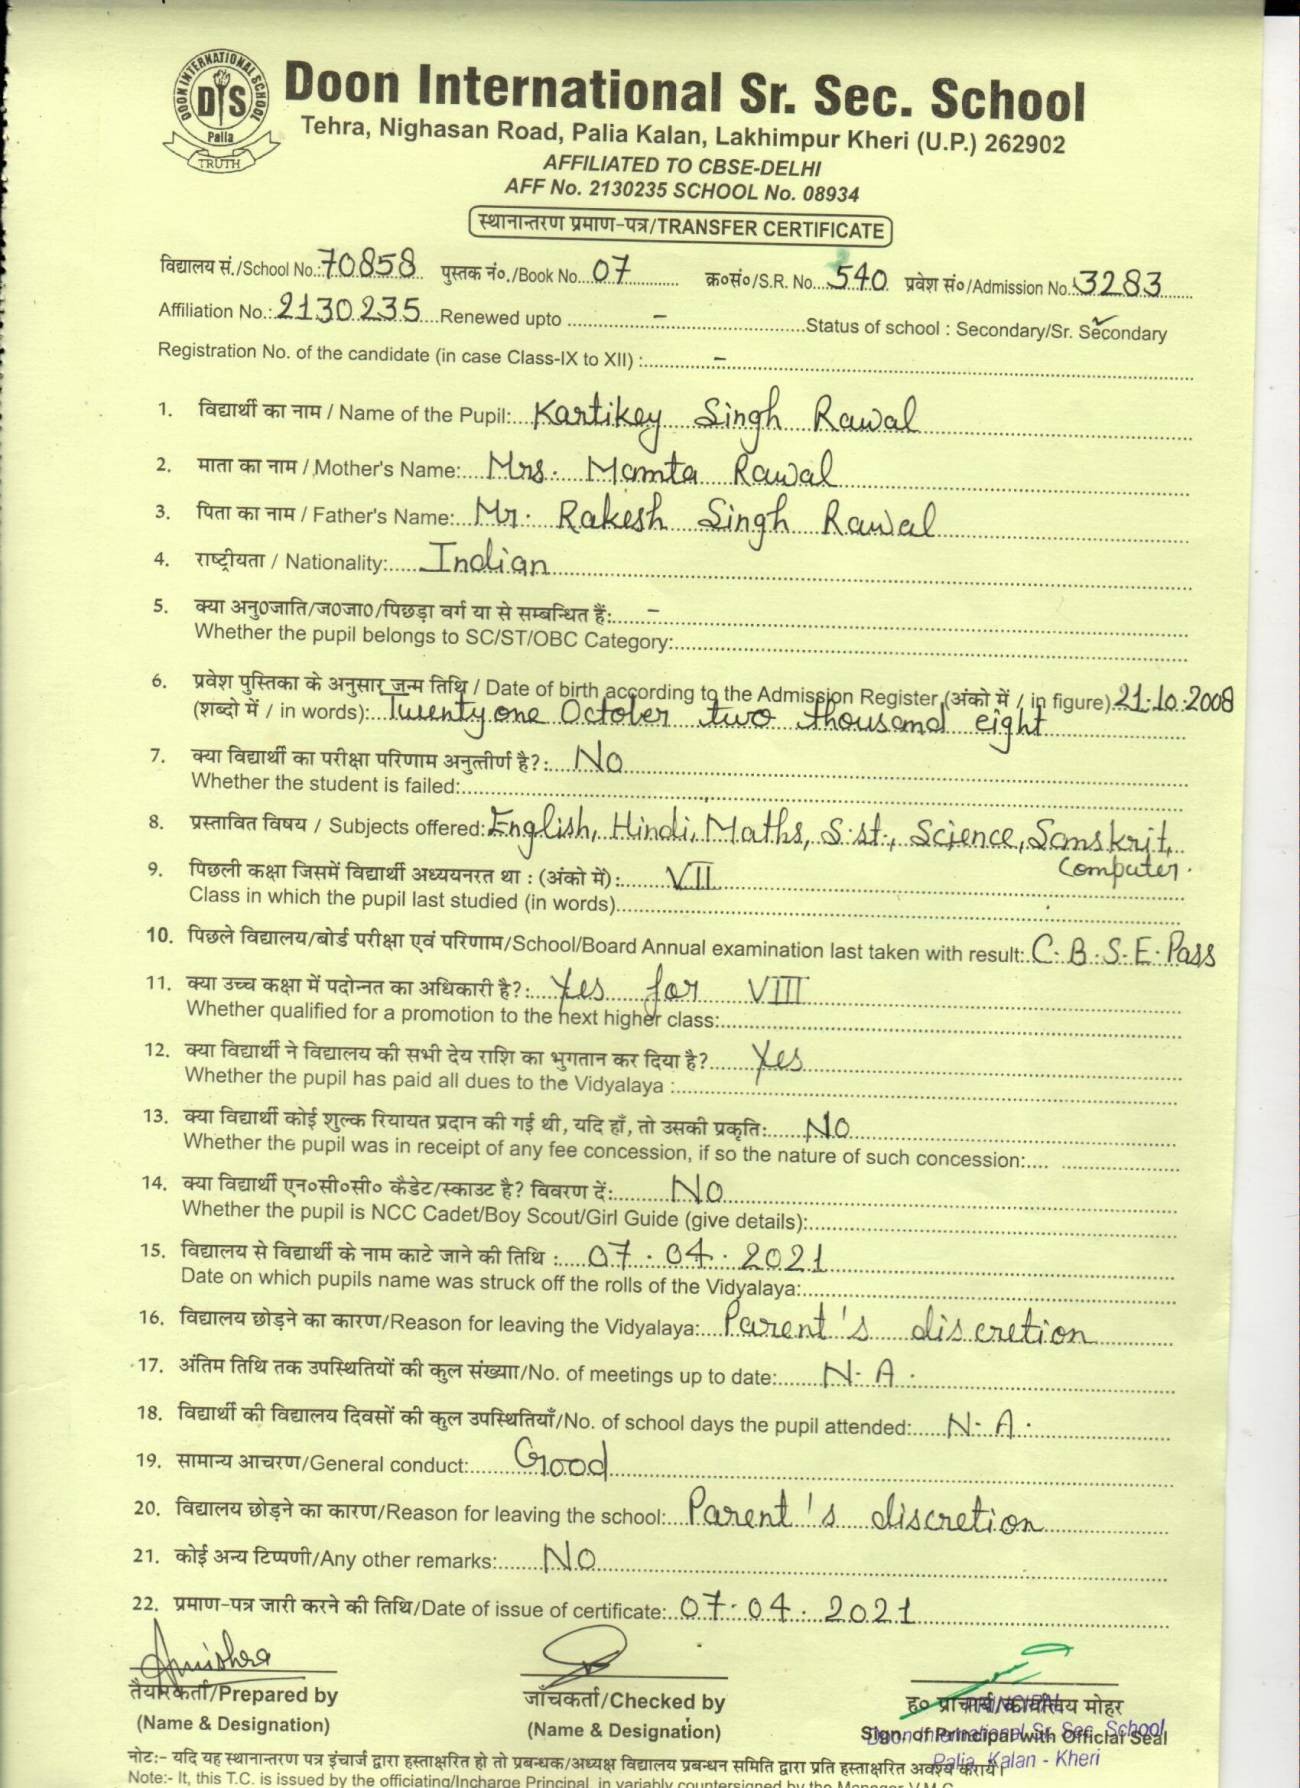 DOON INTERNATIONAL SCHOOL
DIS
Palia
TRUTH
Doon International Sr. Sec. School
Tehra, Nighasan Road, Palia Kalan, Lakhimpur Kheri (U.P.) 262902
AFFILIATED TO CBSE-DELHI
AFF No. 2130235 SCHOOL No. 08934
स्थानान्तरण प्रमाण-पत्र/TRANSFER CERTIFICATE
विद्यालय सं./School No.: 70858 पुस्तक नं०./Book No. 07 क्र०सं०/S.R. No. 540 प्रवेश सं०/Admission No. 3283
Affiliation No.: 2130235 Renewed upto - Status of school : Secondary/Sr. Secondary
Registration No. of the candidate (in case Class-IX to XII) : -
1. विद्यार्थी का नाम / Name of the Pupil: Kartikey Singh Rawal
2. माता का नाम / Mother's Name: Mrs. Mamta Rawal
3. पिता का नाम / Father's Name: Mr. Rakesh Singh Rawal
4. राष्ट्रीयता / Nationality: Indian
5. क्या अनु0जाति/ज0जा0/पिछड़ा वर्ग या से सम्बन्धित हैं: -
Whether the pupil belongs to SC/ST/OBC Category:
6. प्रवेश पुस्तिका के अनुसार जन्म तिथि / Date of birth according to the Admission Register (अंको में / in figure) 21.10.2008
(शब्दो में / in words): Twenty one October two thousand eight
7. क्या विद्यार्थी का परीक्षा परिणाम अनुत्तीर्ण है?: No
Whether the student is failed:
8. प्रस्तावित विषय / Subjects offered: English, Hindi, Maths, S.st., Science, Sanskrit,
Computer.
9. पिछली कक्षा जिसमें विद्यार्थी अध्ययनरत था : (अंको में): VII
Class in which the pupil last studied (in words)
10. पिछले विद्यालय/बोर्ड परीक्षा एवं परिणाम/School/Board Annual examination last taken with result: C.B.S.E. Pass
11. क्या उच्च कक्षा में पदोन्नत का अधिकारी है?: Yes for VIII
Whether qualified for a promotion to the next higher class:
12. क्या विद्यार्थी ने विद्यालय की सभी देय राशि का भुगतान कर दिया है? Yes
Whether the pupil has paid all dues to the Vidyalaya :
13. क्या विद्यार्थी कोई शुल्क रियायत प्रदान की गई थी, यदि हाँ, तो उसकी प्रकृति: No
Whether the pupil was in receipt of any fee concession, if so the nature of such concession:
14. क्या विद्यार्थी एन०सी०सी० कैडेट/स्काउट है? विवरण दें: No
Whether the pupil is NCC Cadet/Boy Scout/Girl Guide (give details):
15. विद्यालय से विद्यार्थी के नाम काटे जाने की तिथि : 07.04.2021
Date on which pupils name was struck off the rolls of the Vidyalaya:
16. विद्यालय छोड़ने का कारण/Reason for leaving the Vidyalaya: Parent's discretion
17. अंतिम तिथि तक उपस्थितियों की कुल संख्याा/No. of meetings up to date: N.A.
18. विद्यार्थी की विद्यालय दिवसों की कुल उपस्थितियाँ/No. of school days the pupil attended: N.A.
19. सामान्य आचरण/General conduct: Good
20. विद्यालय छोड़ने का कारण/Reason for leaving the school: Parent's discretion
21. कोई अन्य टिप्पणी/Any other remarks: No
22. प्रमाण-पत्र जारी करने की तिथि/Date of issue of certificate: 07.04.2021
तैयारकर्ता/Prepared by जाँचकर्ता/Checked by ह० प्राचार्य/कार्यालय मोहर
(Name & Designation) (Name & Designation) Sign. of Principal with Official Seal
PRINCIPAL
Doon International Sr. Sec. School
Palia, Kalan - Kheri
नोट:- यदि यह स्थानान्तरण पत्र इंचार्ज द्वारा हस्ताक्षरित हो तो प्रबन्धक/अध्यक्ष विद्यालय प्रबन्धन समिति द्वारा प्रति हस्ताक्षरित अवश्य करायें।
Note:- It, this T.C. is issued by the officiating/Incharge Principal, in variably countersigned by the Manager V.M.C.